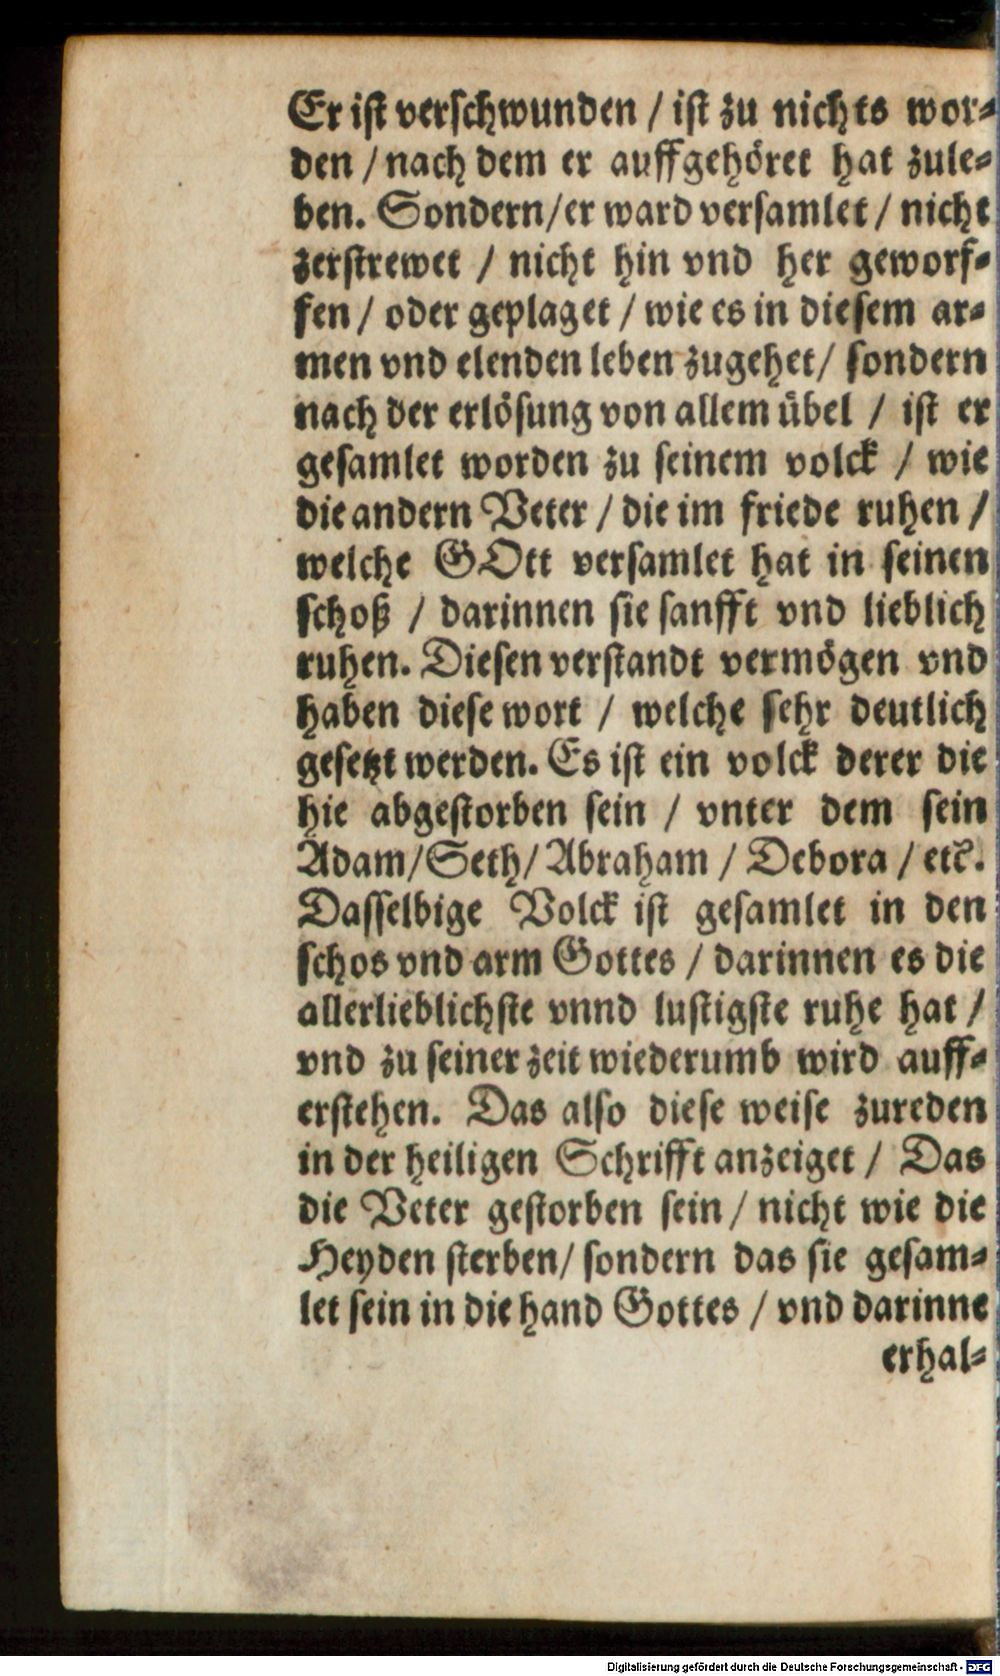 Er ist verschwunden / ist zu nichts wor-
den / nach dem er auffgehöret hat zule-
ben. Sondern/er ward versamlet / nicht
zerstrewet / nicht hin vnd her geworf-
fen / oder geplaget / wie es in diesem ar-
men vnd elenden leben zugehet/ sondern
nach der erlösung von allem übel / ist er
gesamlet worden zu seinem volck / wie
die andern Veter / die im friede ruhen /
welche GOtt versamlet hat in seinen
schoß / darinnen sie sanfft vnd lieblich
ruhen. Diesen verstandt vermögen vnd
haben diese wort / welche sehr deutlich
gesetzt werden. Es ist ein volck derer die
hie abgestorben sein / vnter dem sein
Adam/Seth/ Abraham / Debora / etc.
Dasselbige Volck ist gesamlet in den
schos vnd arm Gottes / darinnen es die
allerlieblichste vnnd lustigste ruhe hat /
vnd zu seiner zeit wiederumb wird auff-
erstehen. Das also diese weise zureden
in der heiligen Schrifft anzeiget / Das
die Veter gestorben sein / nicht wie die
Heyden sterben/ sondern das sie gesam-
let sein in die hand Gottes / vnd darinne
erhal-
Digitalisierung gefördert durch die Deutsche Forschungsgemeinschaft - DFG